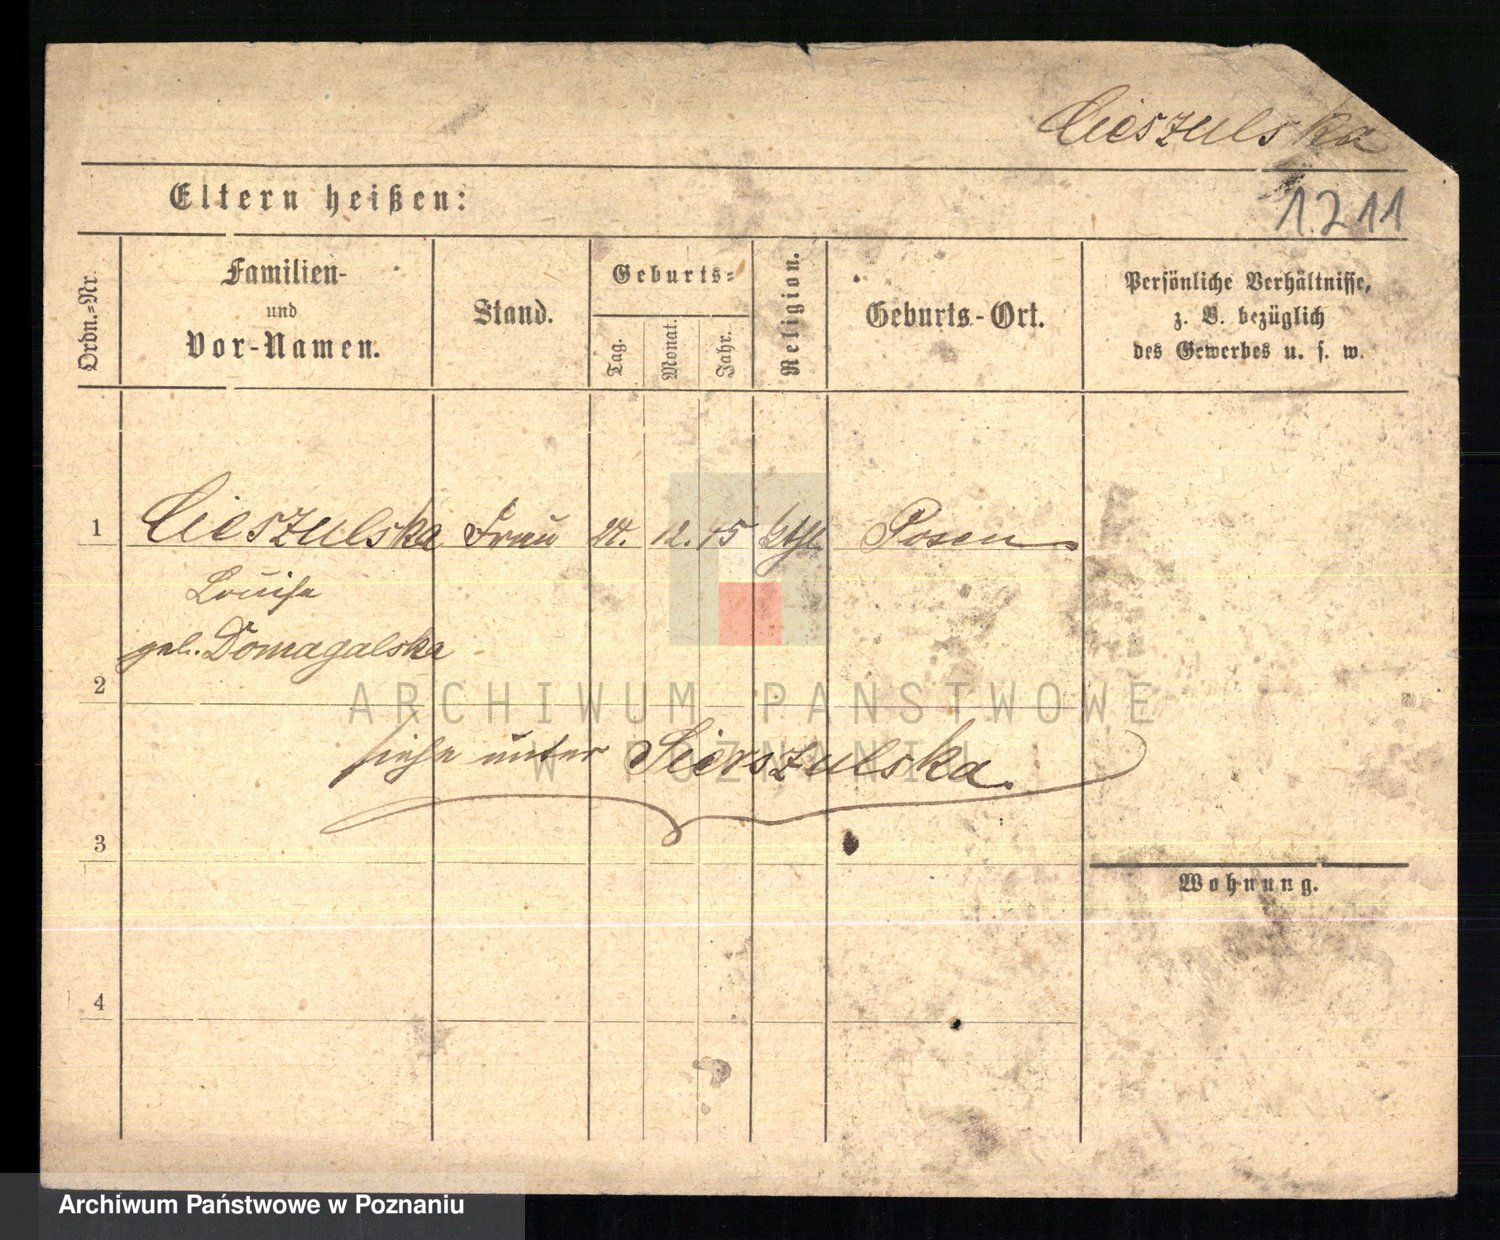 Cieszulska
1.211
Eltern heißen:
Ordn.-Nr.
Familien-
und
Vor-Namen.
Stand.
Geburts-
Tag.
Monat.
Jahr.
Religion.
Geburts-Ort.
Persönliche Verhältnisse,
z. B. bezüglich
des Gewerbes u. s. w.
1 Cieszulska Frau 24. 12. 45 kthl. Posen
Louise
geb. Domagalska
2
siehe unter Sierszulska.
3
Wohnung.
4
ARCHIWUM PAŃSTWOWE
W POZNANIU
Archiwum Państwowe w Poznaniu